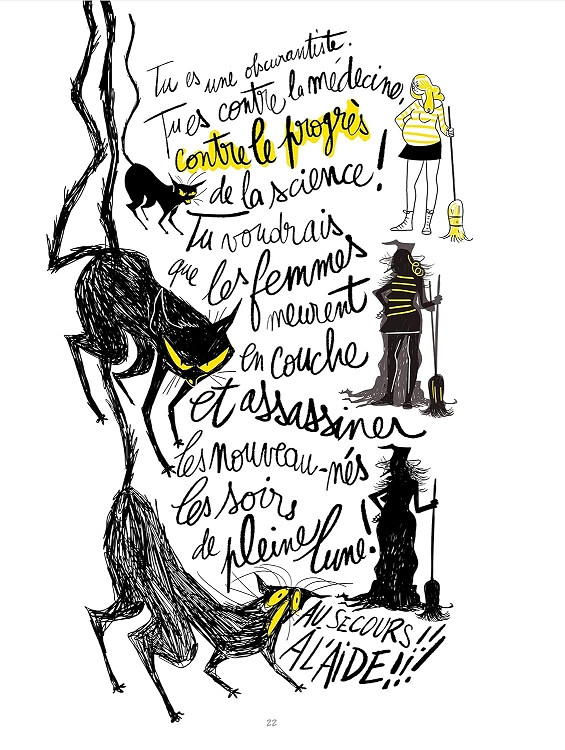 Tu es une obscurantiste.
Tu es contre la médecine,
contre le progrès
de la science!
Tu voudrais
que les femmes
meurent
en couche
et assassiner
les nouveau-nés
les soirs
de pleine lune!
AU SECOURS!!
A L'AIDE!!!
22